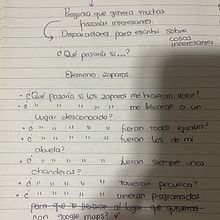 Pregunta que genera muchas
historias interesantes.
Disparadores para escribir sobre
cosas
interesantes.
¿Qué pasaría si...?
Elemento: zapatos.
• ¿Qué pasaría si los zapatos me hicieran volar?
• ¿ " " " " " me llevaran a un
lugar desconocido?
• ¿ " " " " " fueran todos iguales?
• ¿ " " " " " fueran los de mi
abuela?
• ¿ " " " " " fueran siempre unas
chancleras?
• ¿ " " " " " tuvieran pecueca?
• ¿ " " " " " vinieran programados
para que lo llevaran al lugar que quisieras
con google maps?